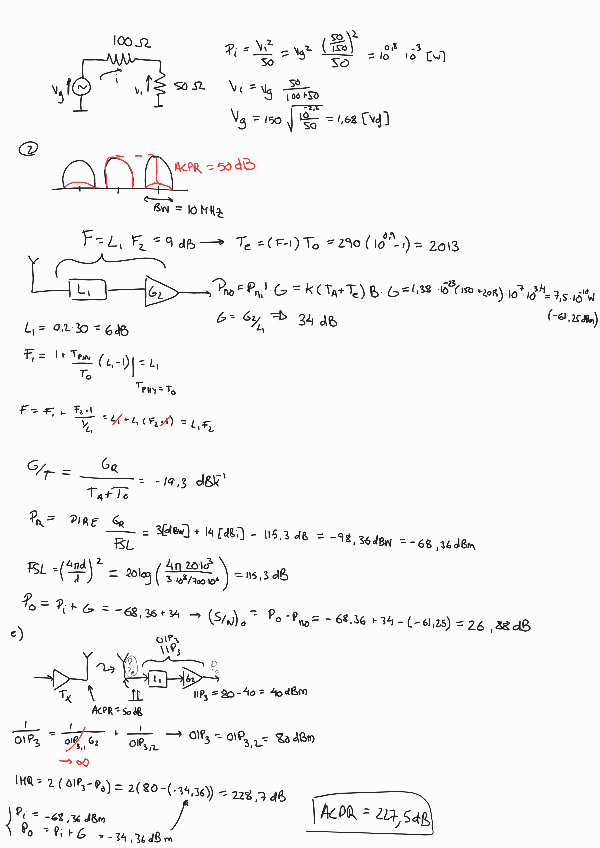 100 Ω
Vg
i
Vi
50 Ω
Pi = Vi²/50 = Vg² (50/150)²/50 = 10^0,8 10^-3 [W]
Vi = Vg 50/(100+50)
Vg = 150 √(10^-2,2/50) = 1,68 [Vd]
2
ACPR = 50 dB
BW = 10 MHz
F = L1 F2 = 9 dB → Te = (F-1) T0 = 290 (10^0,9 -1) = 2013
L1
G2
Pno = Pni · G = K (TA+Te) B · G = 1,38 · 10^-23 (150 + 2013) · 10^7 10^3,4 = 7,5 · 10^-10 W
(-61,25 dBm)
G = G2/L1 ⇒ 34 dB
L1 = 0,2 · 30 = 6 dB
F1 = 1 + TPHY/T0 (L1 -1) | TPHY = T0 = L1
F = F1 + (F2-1)/(1/L1) = L1 + L1 (F2-1) = L1 F2
G/T = GR/(TA+Te) = -19,3 dBK^-1
PR = PIRE GR/FSL = 3[dBW] + 14 [dBi] - 115,3 dB = -98,36 dBW = -68,36 dBm
FSL = (4πd/λ)² = 20log (4π 20 10³/(3·10^8/700 10^6)) = 115,3 dB
Po = Pi + G = -68,36 + 34 → (S/N)o = Po - Pno = -68,36 + 34 - (-61,25) = 26,88 dB
c)
OIP3
IIP3
Tx
ACPR = 50 dB
L1
G2
Po
IIP3 = 80 - 40 = 40 dBm
1/OIP3 = 1/(OIP3,1 G2) + 1/OIP3,2 → OIP3 = OIP3,2 = 80 dBm
→ ∞
IMR = 2 (OIP3 - Po) = 2 (80 - (-34,36)) = 228,7 dB
Pi = -68,36 dBm
Po = Pi + G = -34,36 dBm
ACPR = 227,5 dB